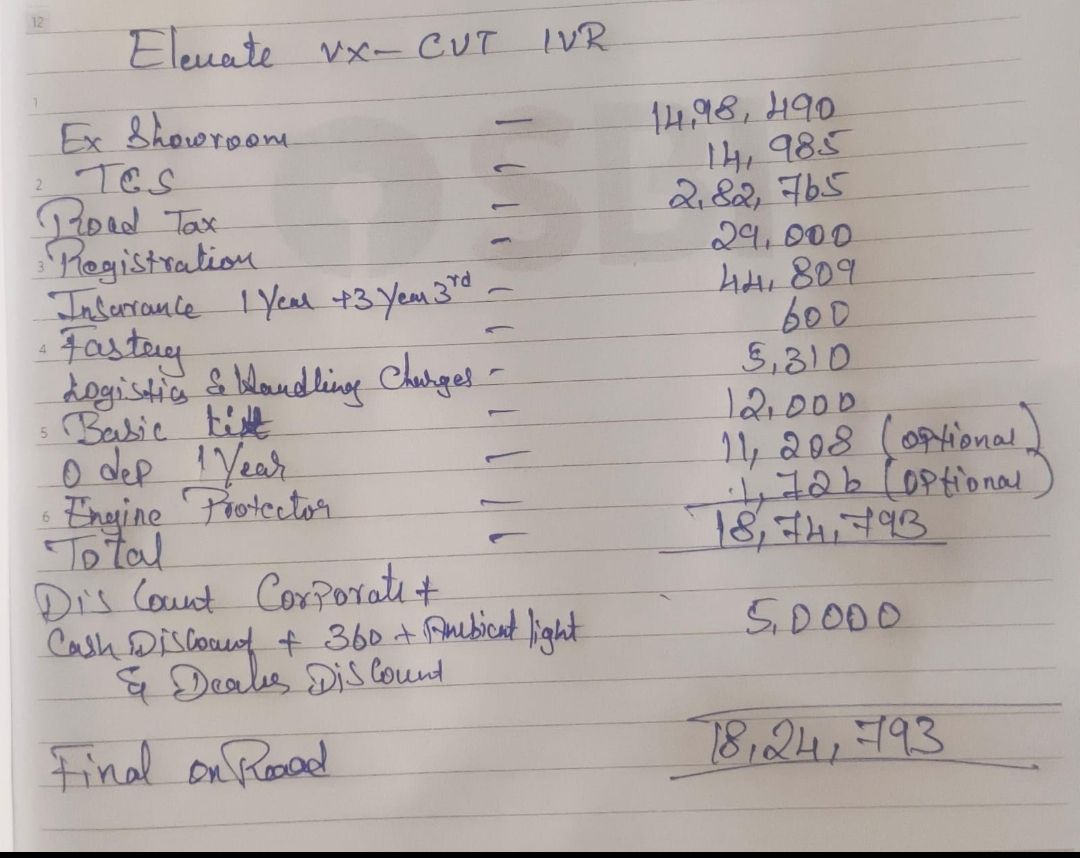 12
Elevate VX- CVT IVR
1
Ex Showroom - 14,98,490
2 TCS - 14,985
Road Tax - 2,82,765
3 Registration - 29,000
Insurance 1 Year +3 Year 3rd - 44,809
4 Fasteg - 600
Logistics & Handling Charges - 5,310
5 Basic kit - 12,000
0 dep 1 Year - 11,208 (optional)
6 Engine Protector - 1,726 (optional)
Total - 18,74,793
DisCount Corporate +
Cash Discount + 360 + Ambient light 5,0000
& Dealer DisCount
Final on Road 18,24,793